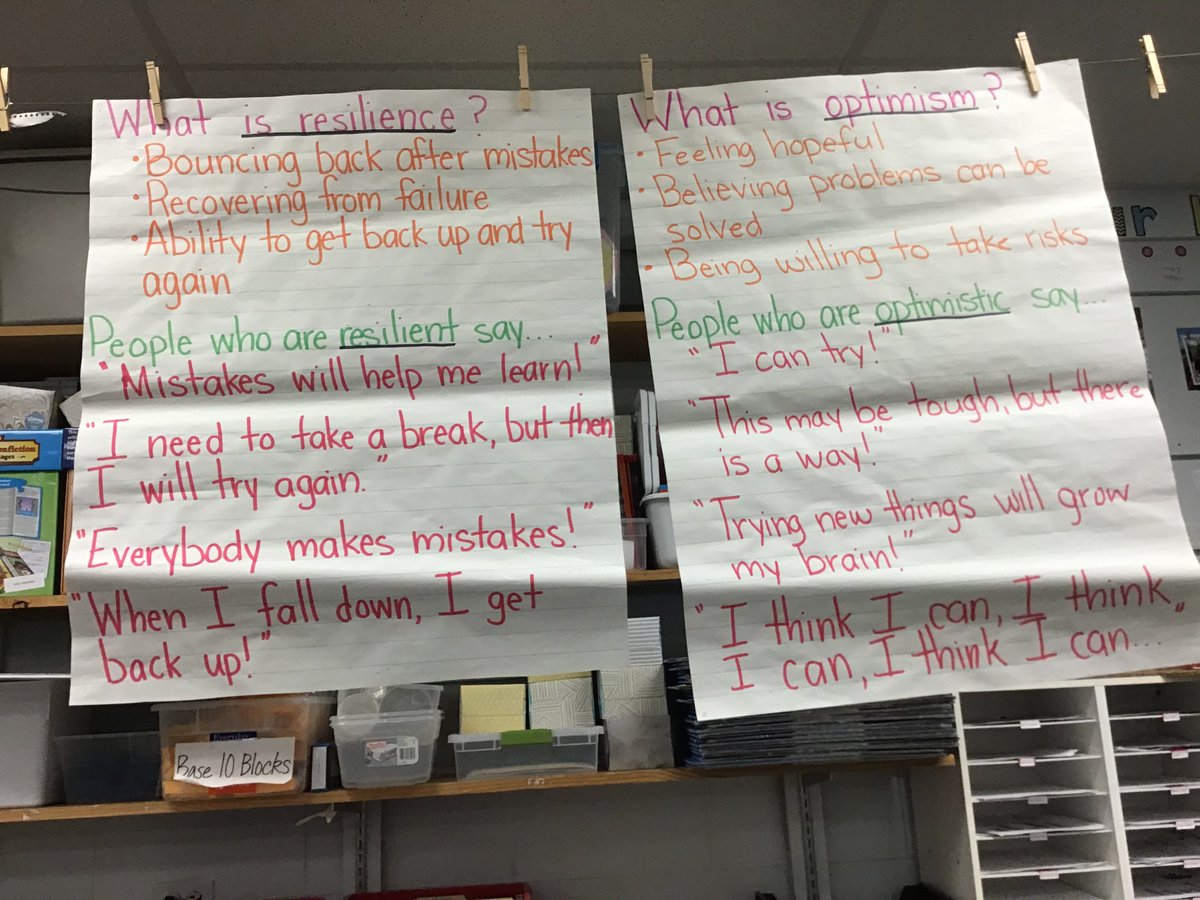 What is resilience?
• Bouncing back after mistakes
• Recovering from failure
• Ability to get back up and try
again
People who are resilient say...
"Mistakes will help me learn!"
"I need to take a break, but then
I will try again."
"Everybody makes mistakes!"
"When I fall down, I get
back up!"
What is optimism?
• Feeling hopeful
• Believing problems can be
solved
• Being willing to take risks
People who are optimistic say...
"I can try!"
"This may be tough, but there
is a way!"
"Trying new things will grow
my brain!"
"I think I can, I think
I can, I think I can..."
nonfiction
Everyday
Base 10 Blocks